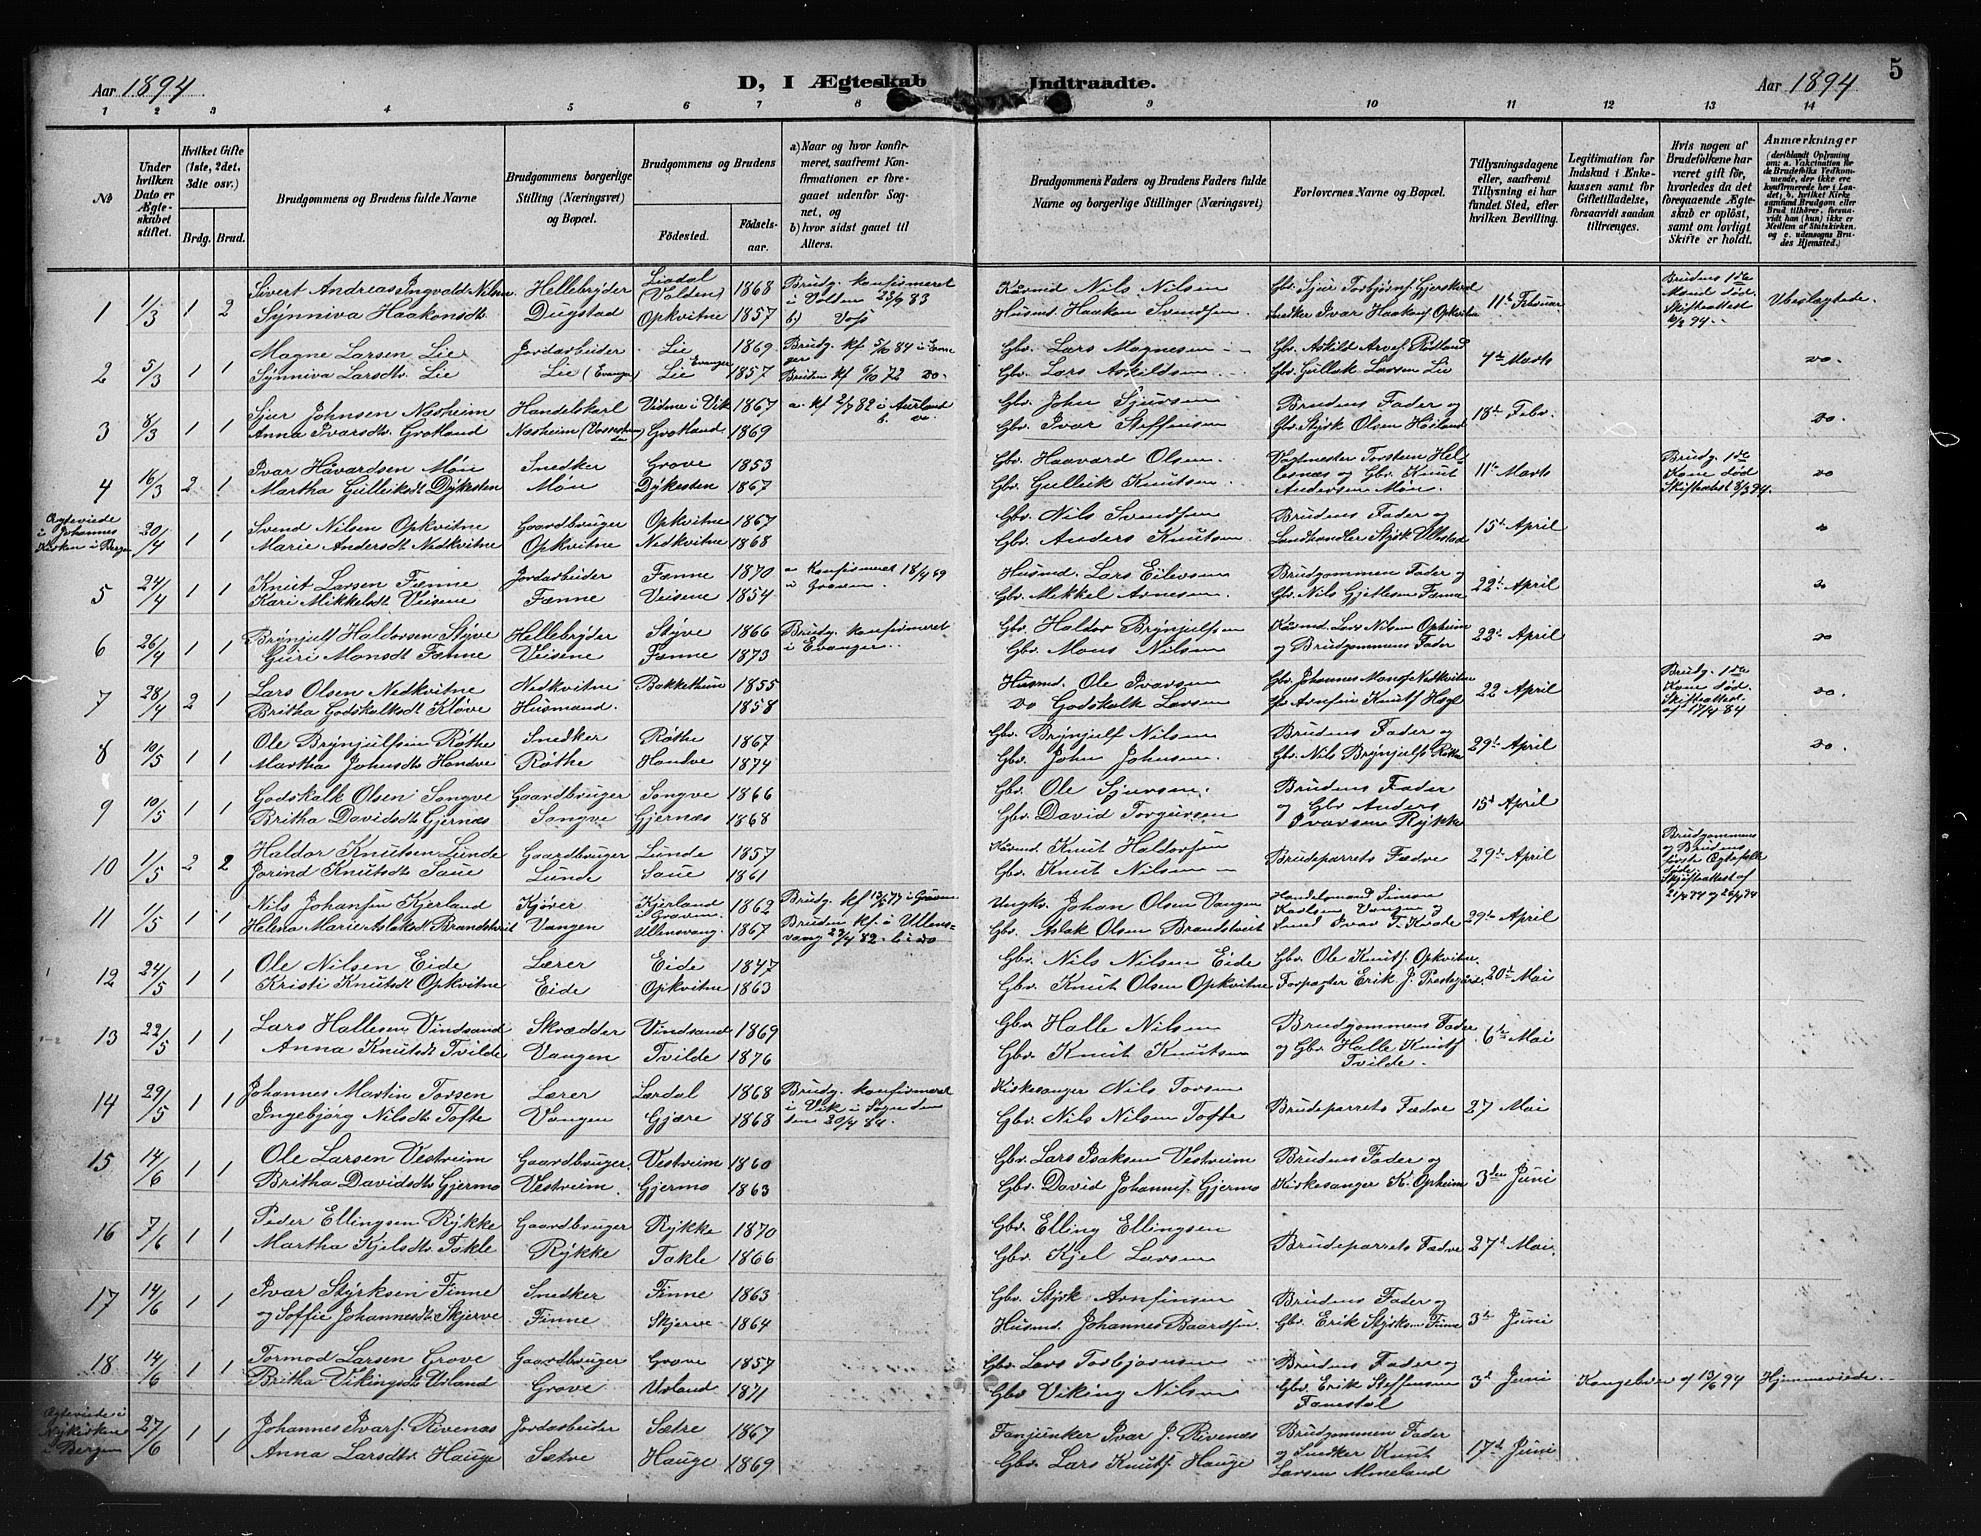 Aar 1894
D, I Ægteskab Indtraadte.
Aar 1894
5
1 2 3 4 5 6 7 8 9 10 11 12 13 14
№
Under hvilken Dato er Ægteskabet stiftet.
Hvilket Gifte (1ste, 2det, 3die osv.)
Brdg. Brud.
Brudgommens og Brudens fulde Navne
Brudgommens borgerlige Stilling (Næringsvei) og Bopæl.
Brudgommens og Brudens
Födested.
Födselsaar.
a) Naar og hvor konfirmeret, saafremt Konfirmationen er foregaaet udenfor Sognet, og
b) hvor sidst gaaet til Alters.
Brudgommens Faders og Brudens Faders fulde Navne og borgerlige Stillinger (Næringsvei)
Forlovernes Navne og Bopæl.
Tillysningsdagene eller, saafremt Tillysning ei har fundet Sted, efter hvilken Bevilling.
Legitimation for Indskud i Enkekassen samt for Giftetilladelse, forsaavidt saadan tiltrænges.
Hvis nogen af Brudefolkene har været gift før, hvorledes da det foregaaende Ægteskab er oplöst, samt om lovligt Skifte er holdt.
Anmærkninger
(deriblandt Oplysning om: a. Vakcination for de Brudefolks Vedkommende, der ikke ere konfirmerede her i Landet; b. hvilket Kirkesamfund Brudgom eller Brud tilhörer, forsaavidt han (hun) ikke er Medlem af Statskirken, og c. udensogns Brudes Hjemsted.)
1 1/3 1 2 Sivert Andreas Ingvald Nilsen Hellebryder Liadal (Volden) 1868 Brudg. konfirmeret Nils Nilsen Gbr. Sjur Torbjørnf. Gjerskvd Brudens 1ste
Synniva Haakonsdtr Dugstad Opkvitne 1857 i Volden 23/9 83 b) Voss Husmd. Haakon Svendsen Snedker Ivar Haakonf Opkvitne 11te Februar Mand död. Skifteattest 94. Ubeslægtede.
2 5/3 1 1 Magne Larsen Lie Jordarbeider Lie 1869 Brudg. kf 5/10 84 i Evanger Gbr. Lars Magnesen Gbr. Askild Arvef. Rödland
Synniva Larsdtr. Lie Lie (Evanger) Lie Evanger 1857 Bruden kf 6/10 72 do. Gbr. Lars Askildsen Gbr. Gullak Larsen Lie 4de Marts do.
3 8/3 1 1 Sjur Johnsen Næsheim Handelskarl Vidme i Vik 1867 a. kf 2/7 82 i Aurland Gbr. John Sjursen Brudens Fader og
Anna Ivarsdtr. Grotland Næsheim Grotland 1869 b. do Gbr. Ivar Steffensen Gbr. Styrk Olsen Høiland 18de Febr. do.
4 16/3 2 1 Ivar Håvardsen Møn Snedker Grove 1853 Gbr. Haavard Olsen Vagtmester Torstein Hellesnæs og Gbr. Knut Brudg. 1ste
Martha Gulleiksdtr Dykesten Møn Dykesten 1867 Gbr. Gulleik Knutsen Andersen Møn. 11te Marts Kone död Skifteattest 8/3 94. do
Ægteviede i Johannes Kirken i Bergen 20/4 1 1 Svend Nilsen Opkvitne Gaardbruger Opkvitne 1867 Gbr. Nils Svendsen Brudens Fader og
Marie Andersdtr Nedkvitne Opkvitne Nedkvitne 1868 Gbr. Anders Knutsen Landhandler Styrk Ullestad 15de April do
5 24/4 1 1 Knut Larsen Fænne Jordarbeider Fænne 1870 a konfirmeret Husmd. Lars Eilevsen Brudgommen Fader og
Kari Mikkelsdtr Veisene Fænne Veisene 1854 i Graven. Gbr. Mikkel Arnesen. Gbr. Nils Gjetlesen Fænne 22de April do
6 26/4 1 1 Brynjulf Haldorsen Styve Hellebryder Styve 1866 Brudg. konfirmeret Gbr. Haldor Brynjulfsen Husmd. Lars Nilsen Opheim
Guri Monsdtr Fænne Veisene Fænne 1873 i Evanger. Gbr. Mons Nilsen og Brudgommens Fader 22de April do
7 28/4 2 1 Lars Olsen Nedkvitne Nedkvitne Bakkethun 1855 Husmd. Ole Ivarsen Gbr. Johannes Monsf Nedkvitne Brudg. 1ste
Britha Godskalksdtr Kløve Husmand. 1858 do Godskalk Larsen Arnfin Knutf 22 April Kone död. Skifteattest af 17/4 84 do.
8 10/5 1 1 Ole Brynjulfsen Røthe Snedker Røthe 1867 Gbr. Brynjulf Nilsen Brudens Fader og
Martha Johnsdtr Hondve Røthe Hondve 1874 Gbr. John Johnsen. Gbr. Nils Brynjulfs. Røthe 29de April do.
9 10/5 1 1 Godskalk Olsen Songve Gaardbruger Songve 1866 Gbr. Ole Sjursen. Brudens Fader
Britha Davidsdtr Gjernæs Songve Gjernæs 1868 Gbr. David Torgeirsen og Gbr Anders Ivarsen Rykke 15de April
10 1/5 2 2 Haldor Knutsen Lunde Gaardbruger Lunde 1857 Knut Haldorsen
Jorind Knutsdtr Saue Lunde Saue 1861 Gbr. Knut Nilsen Brudeparrets Fædre 29de April Brudgommens og Brudens første Ægtefælle døde. Skifteattest af
11 1/5 1 1 Nils Johansen Kjerland Kjører Kjerland i Graven. 1862 Brudg. kf i Graven Ungk. Johan Olsen Vangen Handelsmand Simon
Helena Marie Aslaksdtr Brandstveit Vangen Ullensvang. 1867 Bruden kf. i Ullensvang 82. b i do Gbr. Aslak Olsen Brandstveit Karlsen Vangen og Smed Ivar T. Kvåle 29de April
12 24/5 1 1 Ole Nilsen Eide Lærer Eide 1847 Gbr. Nils Nilsen Eide Gbr. Ole Knutf. Opkvitne.
Kristi Knutsdtr Opkvitne Eide Opkvitne 1863 Gbr. Knut Olsen Opkvitne Forpagter Erik J. Prestegård. 20de Mai
13 22/5 1 1 Lars Hallesen Vindsand Skrædder Vindsand 1869 Gbr Halle Nilsen Brudgommens Fader
Anna Knutsdtr Tvilde Vangen Tvilde 1876 Gbr. Knut Knutsen og Gbr. Halle Knutf Tvilde. 6te Mai
14 29/5 1 1 Johannes Martin Torsen Lærer Lærdal 1868 Brudg. konfirmeret Kirkesanger Nils Torsen
Ingebjørg Nilsdtr Tofte Vangen Gjære 1868 i Vik i Sogn den 20/4 84. Gbr. Nils Nilsen Tofte Brudeparrets Fædre 27 Mai
15 14/6 1 1 Ole Larsen Vestreim Gaardbruger Vestreim 1860 Gbr. Lars Isaksen Vestreim Brudens Fader og
Britha Davidsdtr Gjermo Vestreim. Gjermo 1863 Gbr. David Johannesf. Gjermo Kirkesanger K. Opheim 3den Juni
16 7/6 1 1 Peder Ellingsen Rykke Gaardbruger Rykke 1870 Gbr. Elling Ellingsen
Martha Kjelsdtr. Takle Rykke Takle 1866 Gbr. Kjel Larsen Brudeparrets Fædre 27de Mai.
17 14/6 1 1 Ivar Styrksen Finne Snedker Finne 1863 Gbr. Styrk Arnfinsen Brudens Fader og
og Soffie Johannesdtr. Skjerve Finne Skjerve 1864 Husmd. Johannes Baardsen. Gbr. Erik Styrks. Finne 3de Juni
18 14/6 1 1 Tormod Larsen Grove Gaardbruger Grove 1857 Gbr Lars Torbjørnsen Brudens Fader og
Britha Vikingsdtr Urland Grove Urland 1871 Gbr Viking Nilsen Gbr. Erik Steffensen Fanestøl 3de Juni Kongebrev af 13/6 94 Hjemmeviede.
Ægteviede i Nykirken i Bergen 27/6 1 1 Johannes Ivarf. Rivenæs Jordarbeider Sætre 1867 Fanjunker Ivar J. Rivenæs Brudgommen Fader
Anna Larsdtr. Hauge Sætre Hauge 1869 Gbr. Lars Knutf. Hauge og Snedker Knut Larsen Almeland 17de Juni